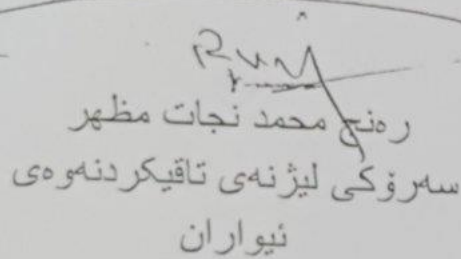 رەنج محمد نجات مظهر
سەرۆکی لیژنەی تاقیکردنەوەی
ئیواران